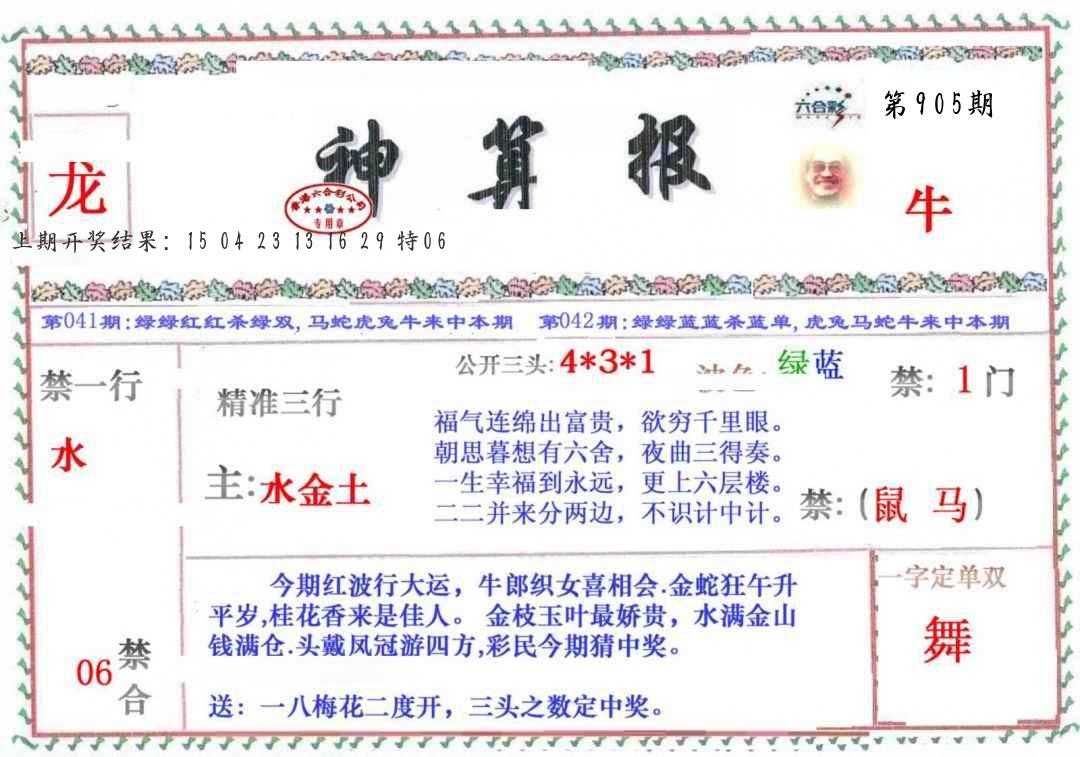 六合彩
第905期
神算报
龙
香港六合彩公司
专用章
牛
上期开奖结果: 15 04 23 13 16 29 特06
第041期:绿绿红红杀绿双,马蛇虎兔牛来中本期 第042期:绿绿蓝蓝杀蓝单,虎兔马蛇牛来中本期
公开三头: 4*3*1
绿蓝
禁: 1门
禁一行
水
精准三行
主:水金土
福气连绵出富贵，欲穷千里眼。
朝思暮想有六舍，夜曲三得奏。
一生幸福到永远，更上六层楼。
二二并来分两边，不识计中计。
禁:(鼠 马)
今期红波行大运，牛郎织女喜相会.金蛇狂午升
平岁,桂花香来是佳人。金枝玉叶最娇贵，水满金山
钱满仓.头戴凤冠游四方,彩民今期猜中奖。
送：一八梅花二度开，三头之数定中奖。
06
禁合
一字定单双
舞